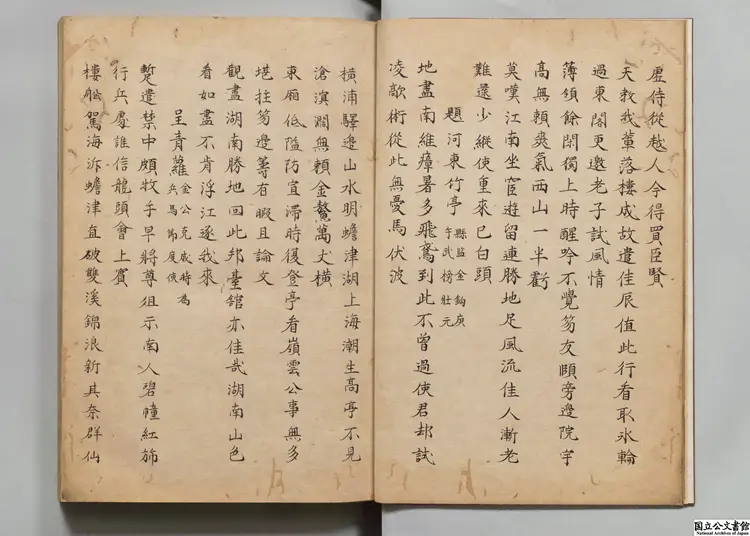 虛侍從越人今得買臣賢
天教我輩落樓成故遣佳辰值此行看取氷輪
過東閣更邀老子試風情
薄領餘閑獨上時醒吟不覺笏友頤旁邊院宇
高無頼爽氣西山一半虧
莫嘆江南坐宦遊留連勝地足風流佳人漸老
難還少縱使重來已白頭
題河東竹亭 縣監金鈎庚
午武榜壯元
地盡南維瘴暑多飛鳶到此不曾過使君却試
凌敵術從此無憂馬伏波
橫浦驛邊山水明蟾津湖上海潮生高亭不見
滄溟濶無頼金鰲萬丈橫
東廂低隘防宣滯時復登亭看嶺雲公事無多
堪拄笏邊籌有暇且論文
觀盡湖南勝地回此邦臺舘亦佳哉湖南山色
看如盡不肯浮江逐我來
呈青蘿 金公克成時為
兵馬節度使
蹔遣禁中頗牧手早將尊俎示南人碧幢紅旆
行兵處誰信龍頭會上賓
樓船駕海泝蟾津直破雙溪錦浪新其奈群仙
国立公文書館
National Archives of Japan